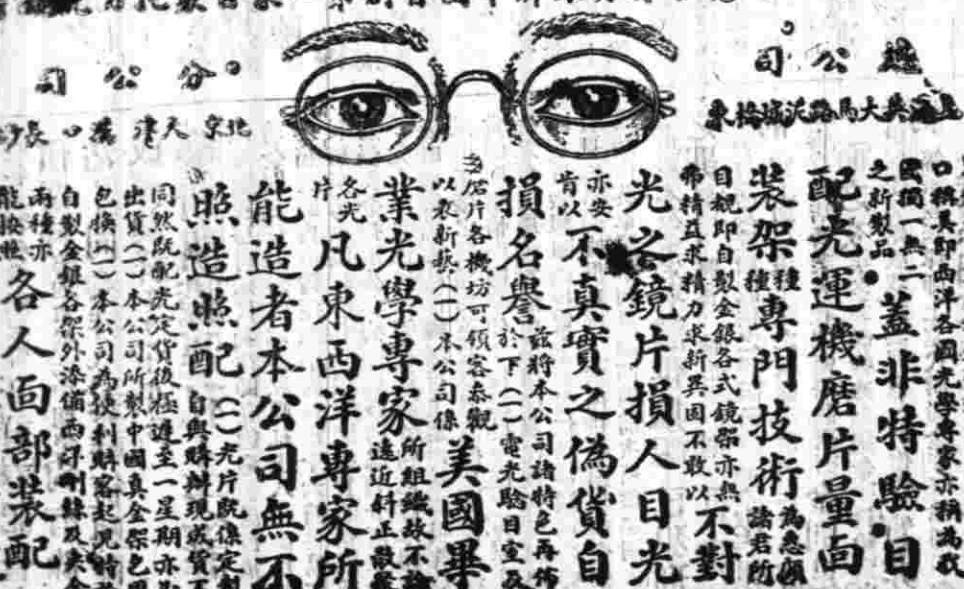 總公司
上海英大馬路泥城橋東
分公司
北京 天津 漢口 長沙
口稱美即西洋各國光學專家亦稱為我
國獨一無二
之新製品
蓋非特驗目
配光運機磨片量面
裝架
種種
專門技術
為悉
諸君所
目覩即自製金銀各式鏡架亦無
弗精益求精力求新異固不敢以
不對
光之鏡片損人目光
亦安
肯以
不真實之偽貨自
損名譽
茲將本公司諸特色再佈
於下(一)電光驗目室及
磨片各機坊可領客參觀
以表新藝(一)本公司係
美國畢
業光學專家
所組織故不論
遠近斜正散
各光
片
凡東西洋專家所
能造者本公司無不
照造照配
(一)光片既係定製
自與購料現成貨不
同然既配光定貨後極遲至一星期亦
出貨(一)本公司所製中國真金架包
包換(一)本公司為便利購客起見特
自製金銀各架外添備西洋
兩種亦
能按照
各人面部裝配